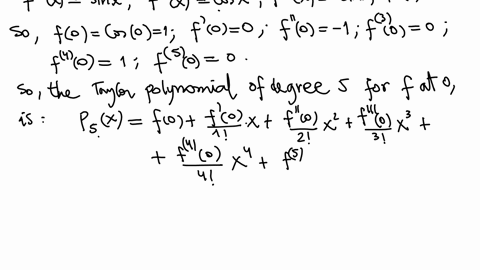 So, f(0)=Cos(0)=1; f'(0)=0; f''(0)=-1; f^(3)(0)=0;
f^(4)(0)=1; f^(5)(0)=0.
So, the Taylor polynomial of degree 5 for f at 0,
is: P_5(x) = f(0) + f'(0)/1! x + f''(0)/2! x^2 + f'''(0)/3! x^3 +
+ f^(4)(0)/4! x^4 + f^(5)